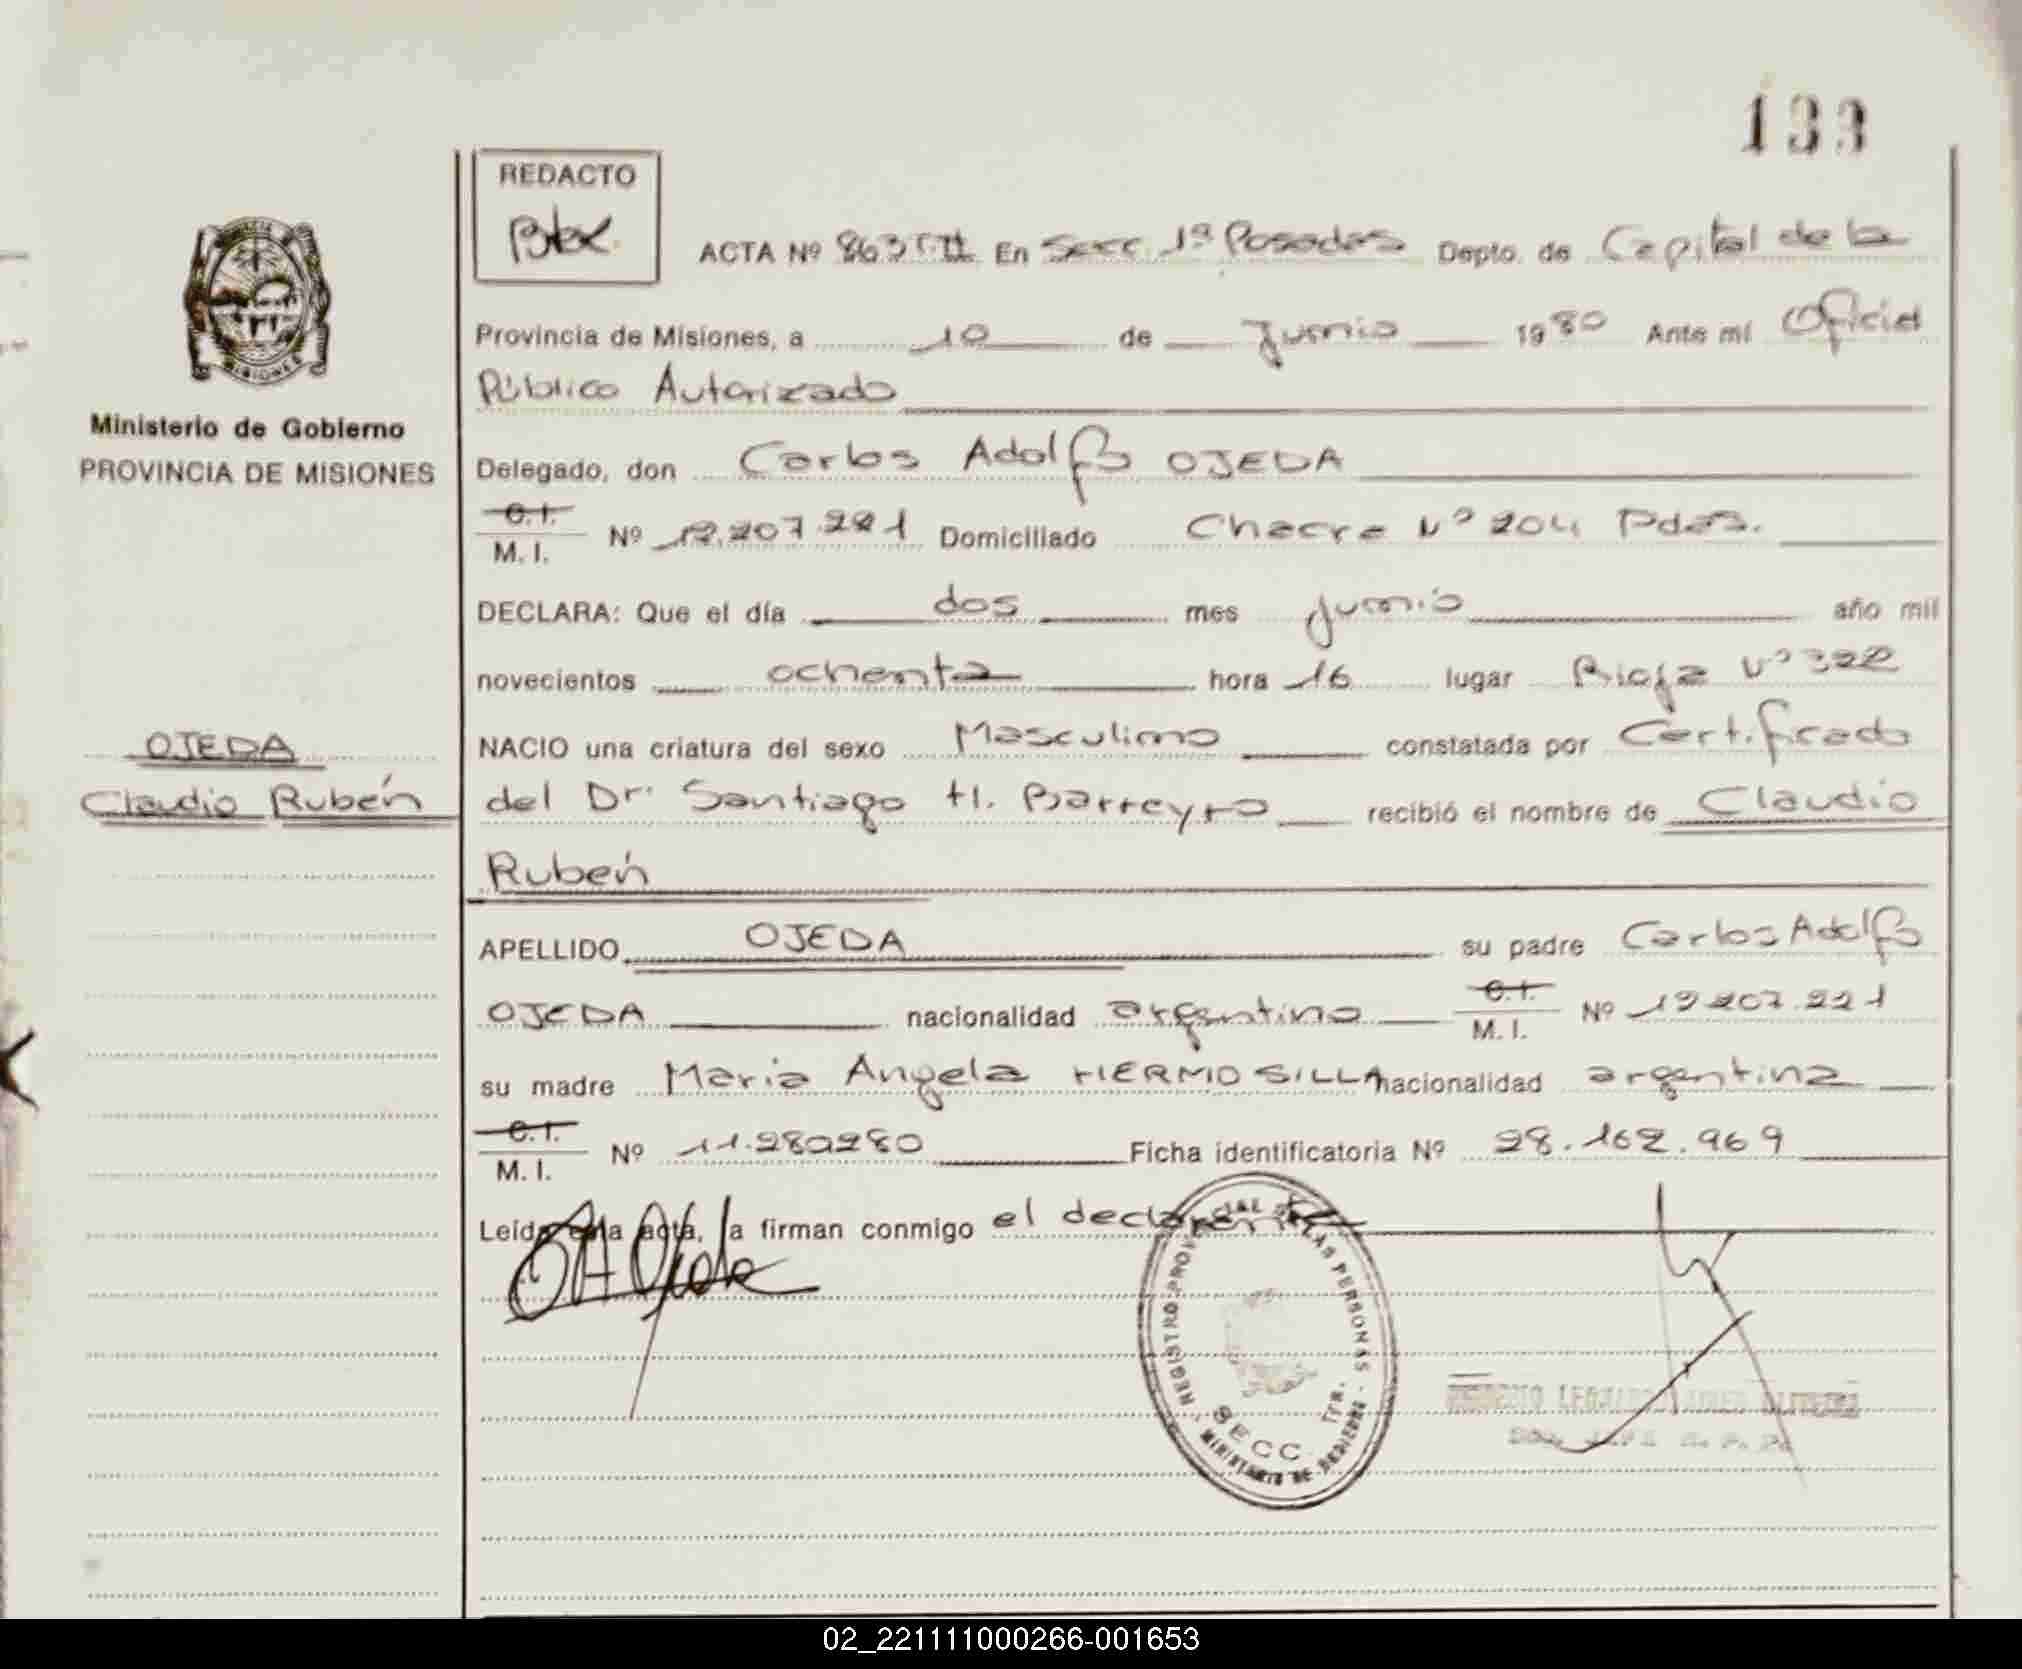 133
REDACTO
ACTA Nº 863 T II En Secc. 1ª Posadas Depto. de Capital de la
Provincia de Misiones, a 10 de Junio 1980 Ante mí Oficial
Público Autorizado
MISIONES
Ministerio de Gobierno
PROVINCIA DE MISIONES
Delegado, don Carlos Adolfo OJEDA
C. I.
M. I. Nº 12.207.221 Domiciliado Chacra Nº 204 Pdas.
DECLARA: Que el día dos mes junio año mil
novecientos ochenta hora 16 lugar Rioja Nº 322
OJEDA
Claudio Rubén
NACIO una criatura del sexo Masculino constatada por Certificado
del Dr. Santiago H. Barreyro recibió el nombre de Claudio
Rubén
APELLIDO OJEDA su padre Carlos Adolfo
OJEDA nacionalidad argentino C. I. M. I. Nº 12.207.221
su madre Maria Angela HERMOSILLA nacionalidad argentina
C. I.
M. I. Nº 11.280280 Ficha identificatoria Nº 28.162.969
Leída esta acta, la firman conmigo el declarante
REGISTRO PROVINCIAL DE LAS PERSONAS
SECC. 1ra.
MINISTERIO DE GOBIERNO
02_221111000266-001653